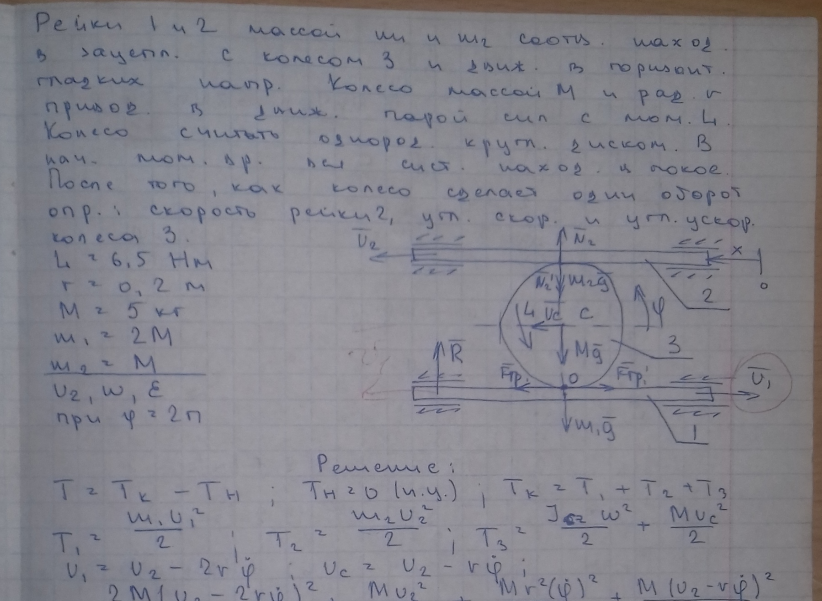 Рейки 1 и 2 массой m₁ и m₂ соотв. наход.
в зацепл. с колесом 3 и движ. в горизонт.
гладких напр. Колесо массой M и рад. r
привод. в движ. парой сил с мом. L.
Колесо считать однород. кругл. диском. В
нач. мом. вр. вся сист. наход. в покое.
После того, как колесо сделает один оборот
опр.: скорость рейки 2, угл. скор. и угл. ускор.
колеса 3.
L = 6,5 Нм
r = 0,2 м
M = 5 кг
m₁ = 2M
m₂ = M
υ₂, ω, ε
при φ = 2π
υ̅₂
N̅₂
x
0
N̅₂'
m₂g̅
2
L
υ̅c
C
φ
Mg̅
3
R̅
F̅тр.
0
F̅тр.'
υ̅₁
m₁g̅
1
Решение:
T = Tк − Tн ; Tн = 0 (н.у.) ; Tк = T₁ + T₂ + T₃
T₁ = m₁υ₁²/2 ; T₂ = m₂υ₂²/2 ; T₃ = Jcz ω²/2 + Mυc²/2
υ₁ = υ₂ − 2rφ̇ ; υc = υ₂ − rφ̇ ;
2M(υ₂ − 2rφ̇)² Mυ₂² + Mr²(φ̇)² + M(υ₂ − rφ̇)²